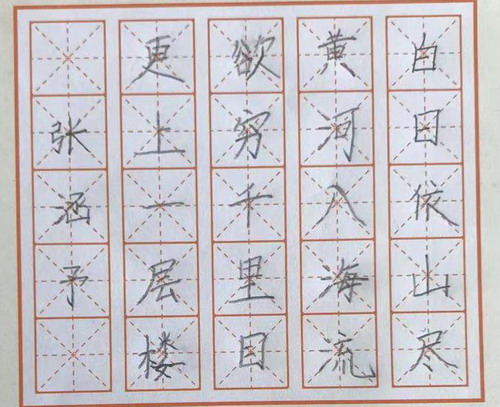 白日依山尽
黄河入海流
欲穷千里目
更上一层楼
张函予